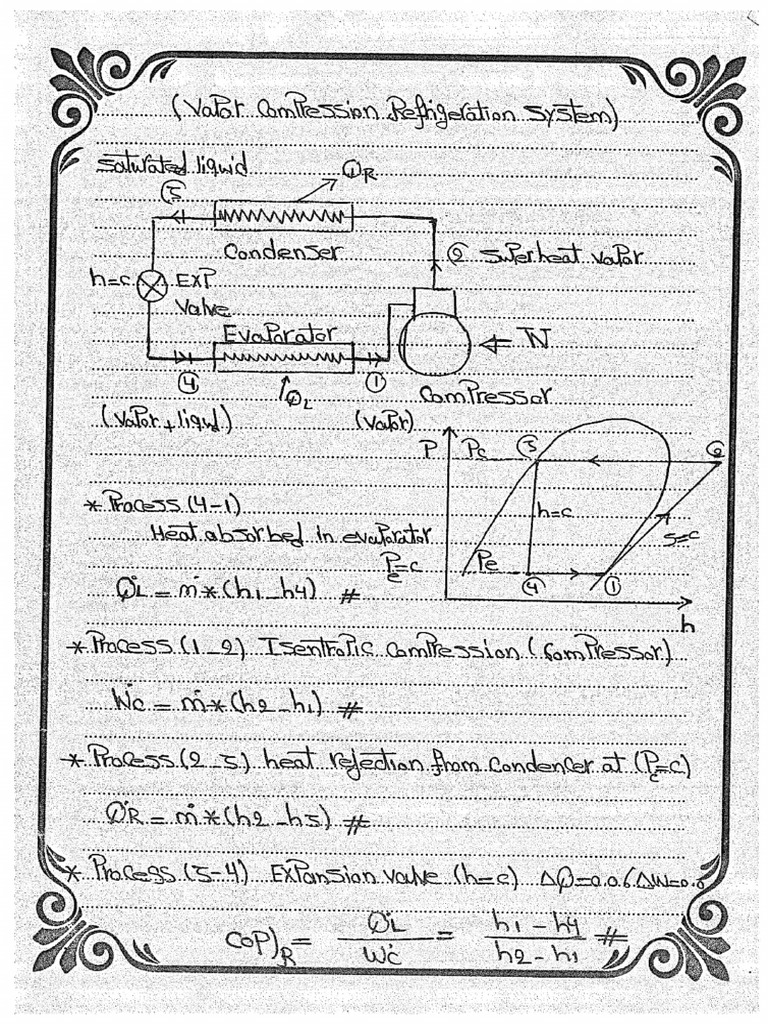 (Vapor Compression Refrigeration System)
saturated liquid
QR
3
Condenser
2 superheat vapor
h=c
EXP
Valve
Evaporator
W
4
1
QL
Compressor
(Vapor + liquid)
(vapor)
P
Pc
3
2
h=c
s=c
Pe
4
1
h
* Process (4-1)
Heat absorbed in evaporator
Pe=c
Q̇L = ṁ*(h1-h4) #
* Process (1-2) Isentropic compression (Compressor)
Ẇc = ṁ*(h2-h1) #
* Process (2-3) heat rejection from condencer at (Pc=c)
Q̇R = ṁ*(h2-h3) #
* Process (3-4) Expansion valve (h=c) ΔQ=0.0 & ΔW=0.0
COP)R = Q̇L / Ẇc = h1-h4 / h2-h1 #